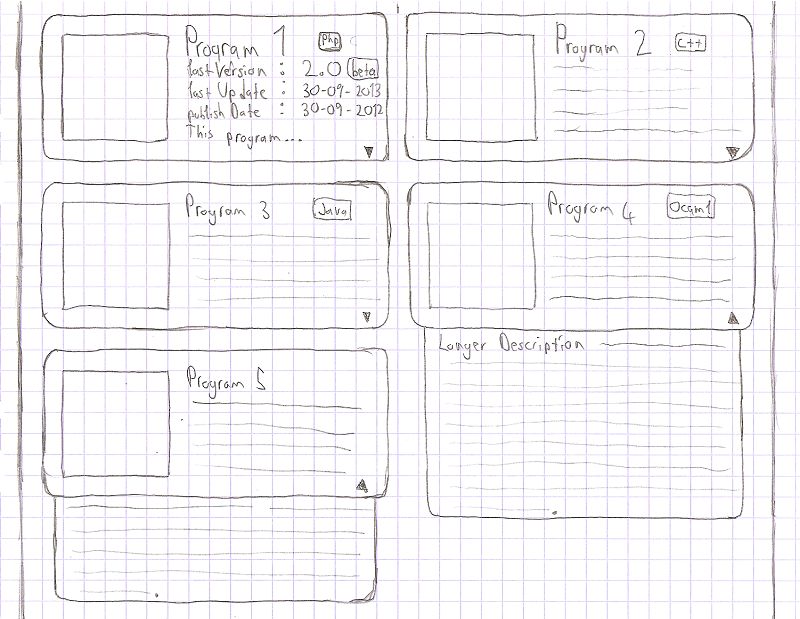 Program 1 php
last Version : 2.0 beta
last Update : 30-09-2013
publish Date : 30-09-2012
This program...
Program 2 C++
Program 3 Java
Program 4 Ocaml
Longer Description
Program 5